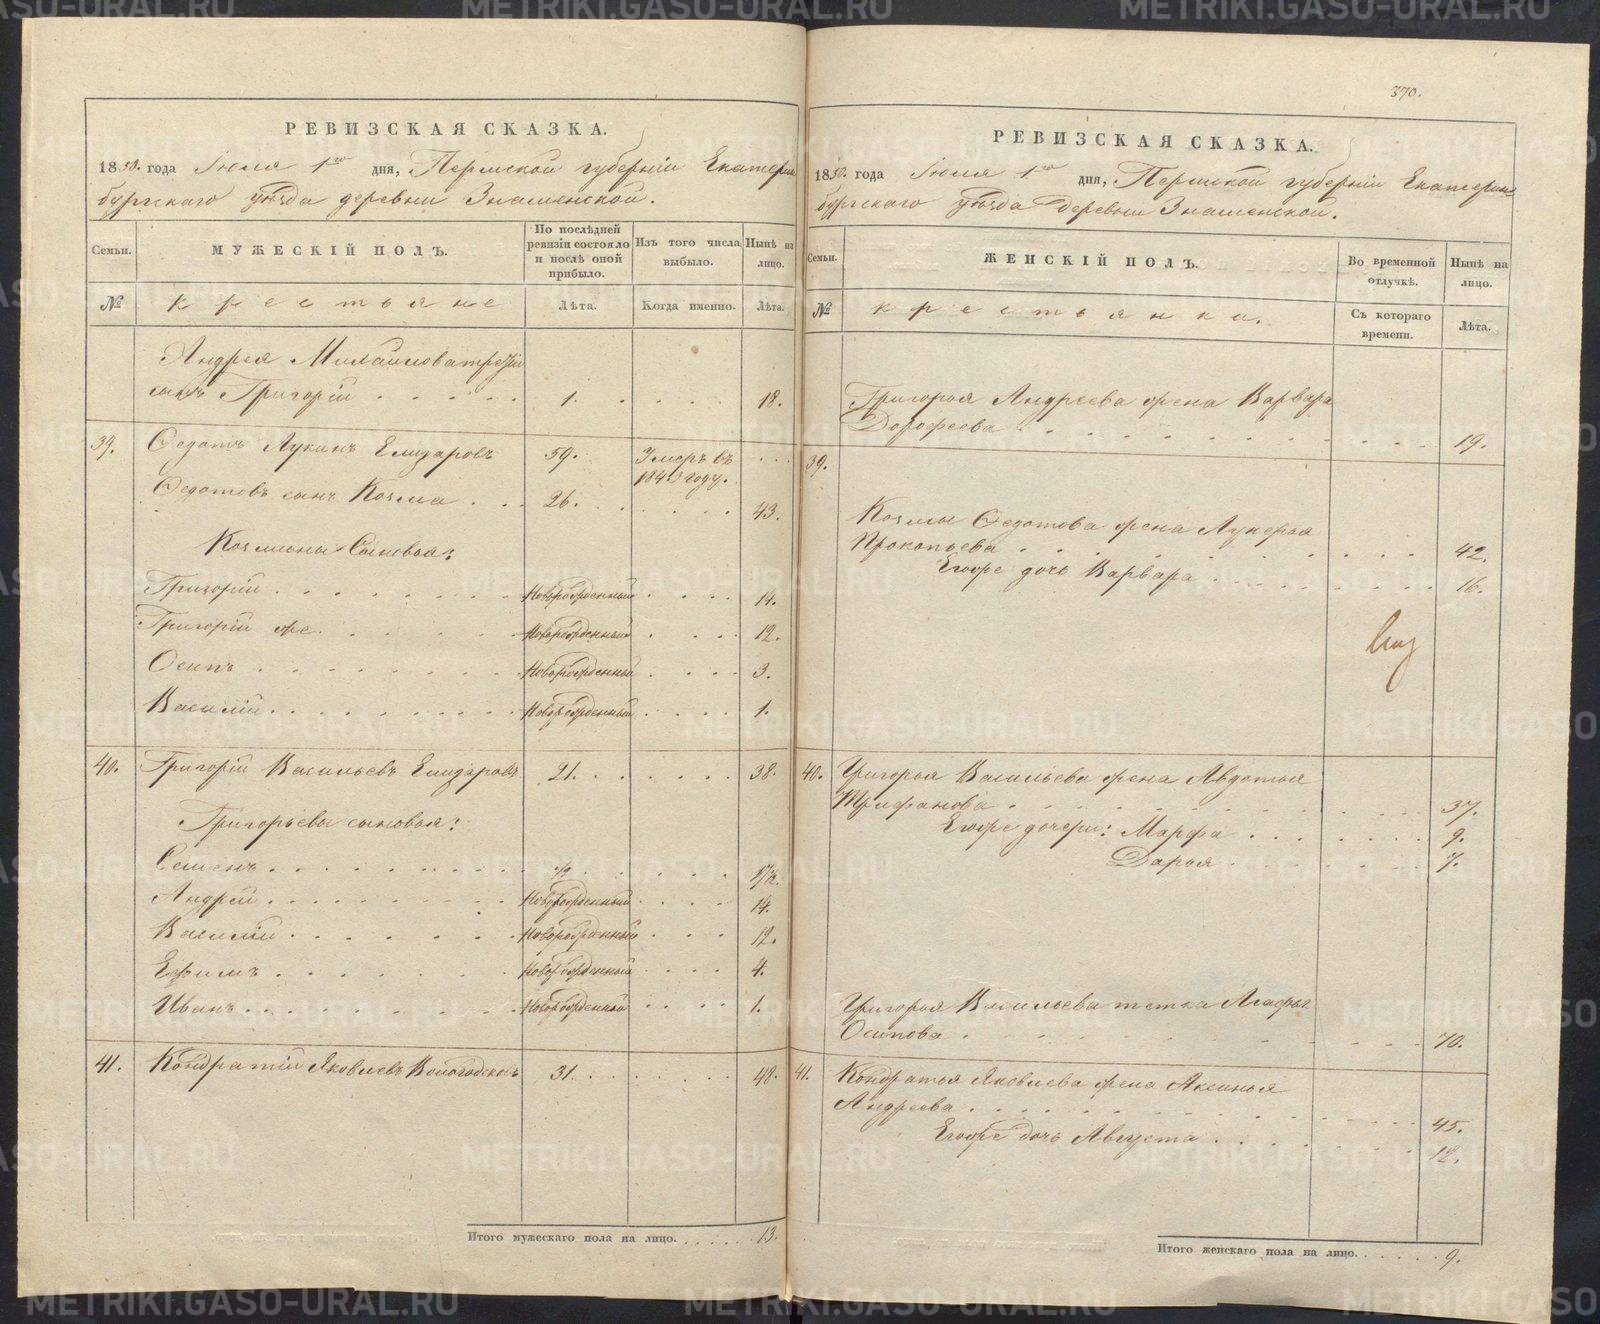 370.
РЕВИЗСКАЯ СКАЗКА.
1850. года Іюля 1го дня, Пермской губерніи Екатерин
бургскаго уѣзда деревни Знаменской.
Семьи.
МУЖЕСКІЙ ПОЛЪ.
По послѣдней ревизіи состояло и послѣ оной прибыло.
Изъ того числа выбыло.
Нынѣ на лицо.
№
крестьяне
Лѣта.
Когда именно.
Лѣта.
Андрея Михайлова третій
сынъ Григорій . . . . . 1. . . . . 18.
39. Федотъ Лукинъ Елизаровъ 59. Умеръ въ . . .
184 году.
Федотовъ сынъ Козма . . . 26. . . . . 43.
Козмины Сыновья:
Григорій . . . . Новорожденный . . . 14.
Григорій же . . . . Новорожденный . . . 12.
Осипъ . . . . Новорожденный . . . 3.
Василій . . . . Новорожденный . . . 1.
40. Григорій Васильевъ Елизаровъ 21. . . . . 38.
Григорьевы сыновья:
Семенъ . . . . ½ . . . . 17½.
Андрей . . . . Новорожденный . . . 14.
Василій . . . . Новорожденный . . . 12.
Ефимъ . . . . Новорожденный . . . 4.
Иванъ . . . . Новорожденный . . . 1.
41. Кондратій Яковлевъ Вологодскихъ 31. . . . . 48.
Итого мужескаго пола на лицо. . . . . . 13.
РЕВИЗСКАЯ СКАЗКА.
1850. года Іюля 1го дня, Пермской губерніи Екатерин-
бургскаго уѣзда деревни Знаменской.
Семьи.
ЖЕНСКІЙ ПОЛЪ.
Во временной отлучкѣ.
Нынѣ на лицо.
№
крестьянки.
Съ котораго времени.
Лѣта.
Григорья Андреева жена Варвара
Дорофеева . . . . . . . 19.
39.
Козмы Федотова жена Лукерья
Прокопьева . . . . . . . 42.
Егоже дочь Варвара . . . . . 16.
40. Григорья Васильева жена Авдотья
Трифанова . . . . . . . 37.
Егоже дочери: Марфа . . . . . 9.
Дарья . . . . . 7.
Григорья Васильева тетка Агафья
Осипова . . . . . . . 70.
41. Кондратья Яковлева жена Аксинья
Андреева . . . . . . . 45.
Егоже дочь Августа . . . . . 12.
Итого женскаго пола на лицо. . . . . . 9.
METRIKI.GASO-URAL.RU